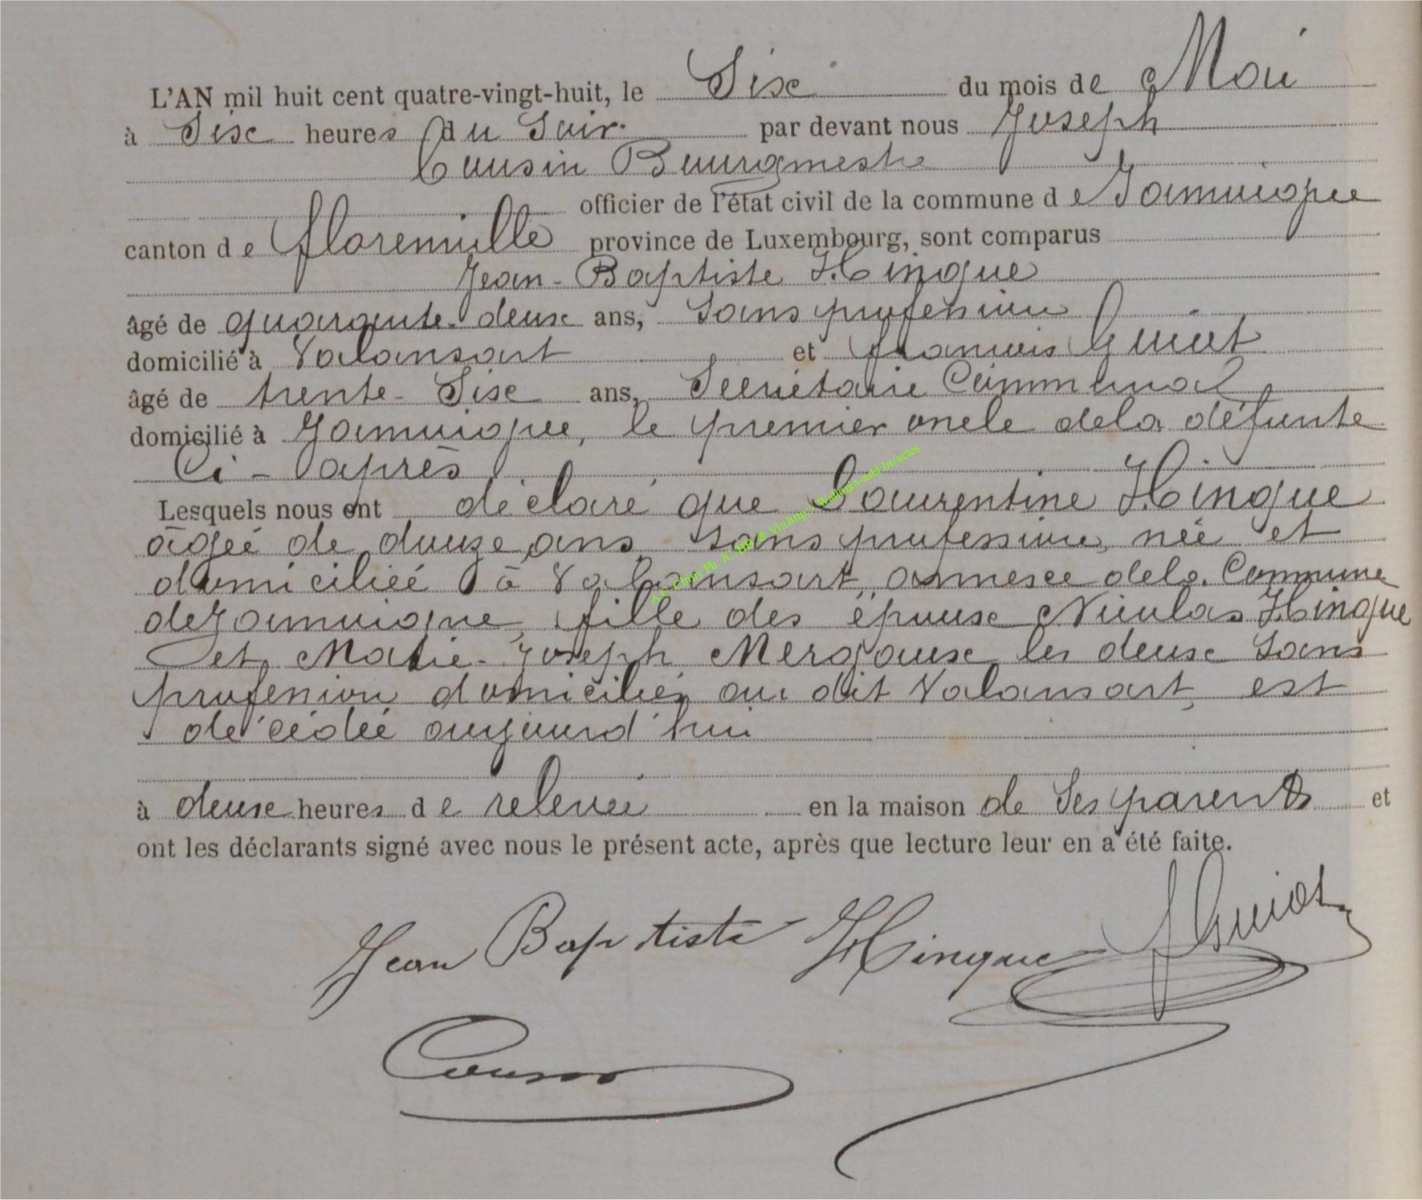 L'AN mil huit cent quatre-vingt-huit, le Six du mois de Mai
à Six heures du Soir par devant nous Joseph
Cousin Bourgmestre
officier de l'état civil de la commune de Jamoigne
canton de florenville province de Luxembourg, sont comparus
Jean-Baptiste Hingue
âgé de quarante-deux ans, Sans profession
domicilié à Valansart et françois Guiot
âgé de trente-Six ans, Secrétaire Communal
domicilié à Jamoigne, le premier oncle de la défunte
Ci-après
Lesquels nous ont déclaré que Laurentine Hingue
âgée de douze ans, sans profession, née et
domiciliée à Valansart, annexe de la Commune
de Jamoigne, fille des époux Nicolas Hingue
et Marie-Joseph Mergeaux, les deux Sans
profession domiciliés au dit Valansart, est
décédée aujourd'hui
à deux heures de relevée en la maison de Ses parents et
ont les déclarants signé avec nous le présent acte, après que lecture leur en a été faite.
Jean Baptiste Hingue J Guiot
Cousin